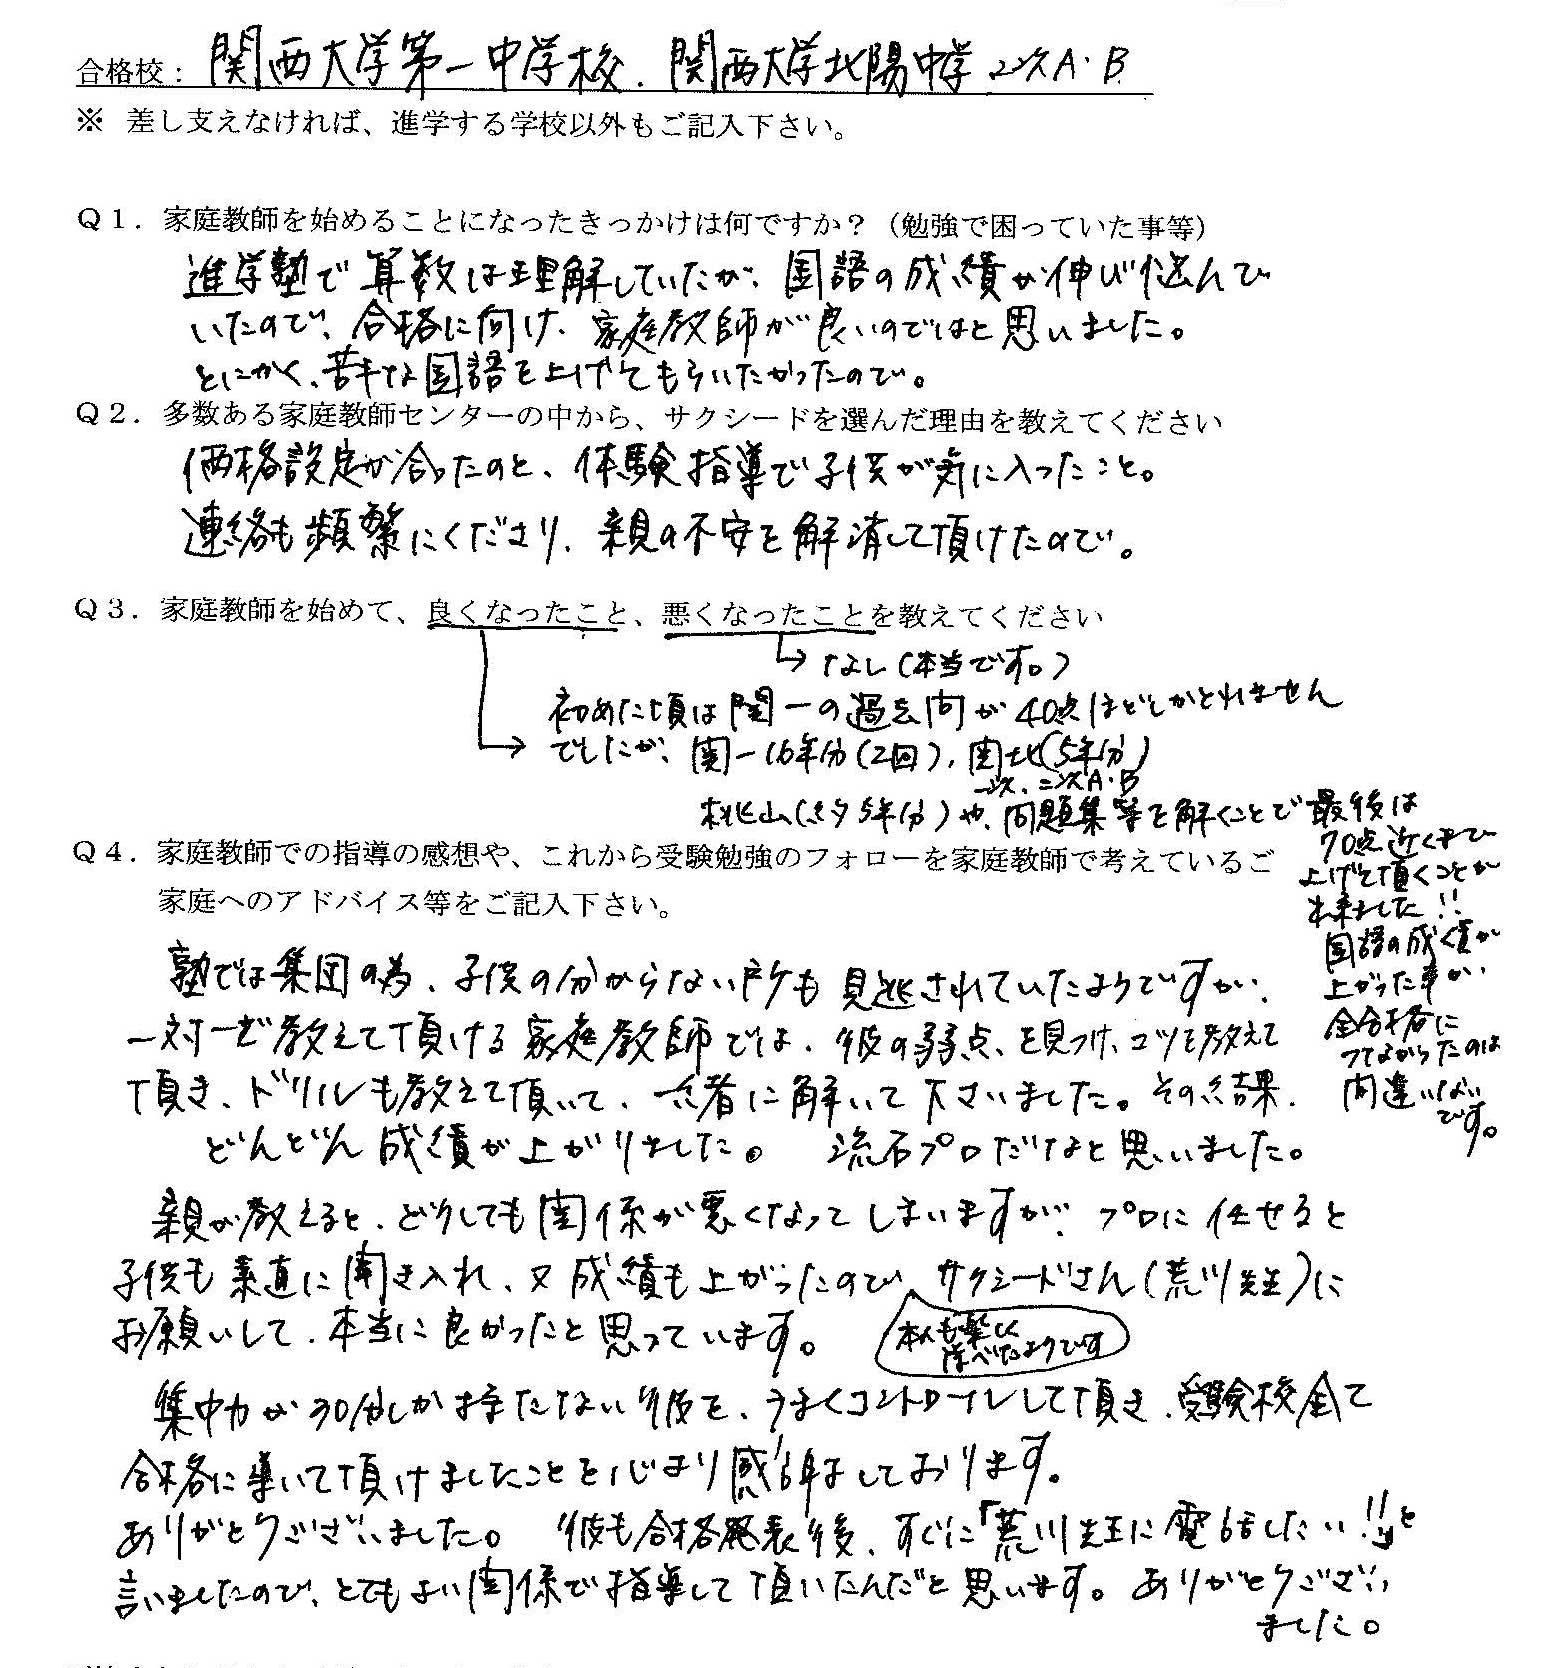 合格校：関西大学第一中学校、関西大学北陽中学 2次A・B
※ 差し支えなければ、進学する学校以外もご記入下さい。
Q1．家庭教師を始めることになったきっかけは何ですか？（勉強で困っていた事等）
進学塾で算数は理解していたが、国語の成績が伸び悩んで
いたので、合格に向け、家庭教師が良いのではと思いました。
とにかく、苦手な国語を上げてもらいたかったので。
Q2．多数ある家庭教師センターの中から、サクシードを選んだ理由を教えてください
価格設定が合ったのと、体験指導で子供が気に入ったこと。
連絡も頻繁にくださり、親の不安を解消して頂けたので。
Q3．家庭教師を始めて、良くなったこと、悪くなったことを教えてください
→ なし（本当です。）
初めた頃は関一の過去問が40点ほどしかとれません
→ でしたが、関一16年分(2回)、関北(5年分)
一次、二次A・B
桃山(5年分)や、問題集等を解くことで最後は
70点近くまで
上げて頂くことが
出来ました!!
国語の成績が
上がった事が、
全合格に
つながったのは
間違いない
です。
Q4．家庭教師での指導の感想や、これから受験勉強のフォローを家庭教師で考えているご
家庭へのアドバイス等をご記入下さい。
塾では集団の為、子供の分からない所も見逃されていたようですが、
一対一で教えて頂ける家庭教師では、彼の弱点を見つけ、コツを教えて
頂き、ドリルも教えて頂いて、一緒に解いて下さいました。その結果、
どんどん成績が上がりました。流石プロだなと思いました。
親が教えると、どうしても関係が悪くなってしまいますが、プロに任せると
子供も素直に聞き入れ、又成績も上がったので、サクシードさん(荒川先生)に
お願いして、本当に良かったと思っています。
本人も楽しく
学べたようです
集中力が30分しか持たない彼を、うまくコントロールして頂き、受験校全て
合格に導いて頂けましたことを心より感謝しております。
ありがとうございました。彼も合格発表後、すぐに「荒川先生に電話したい!!」と
言いましたので、とてもよい関係で指導して頂いたんだと思います。ありがとうござい
ました。